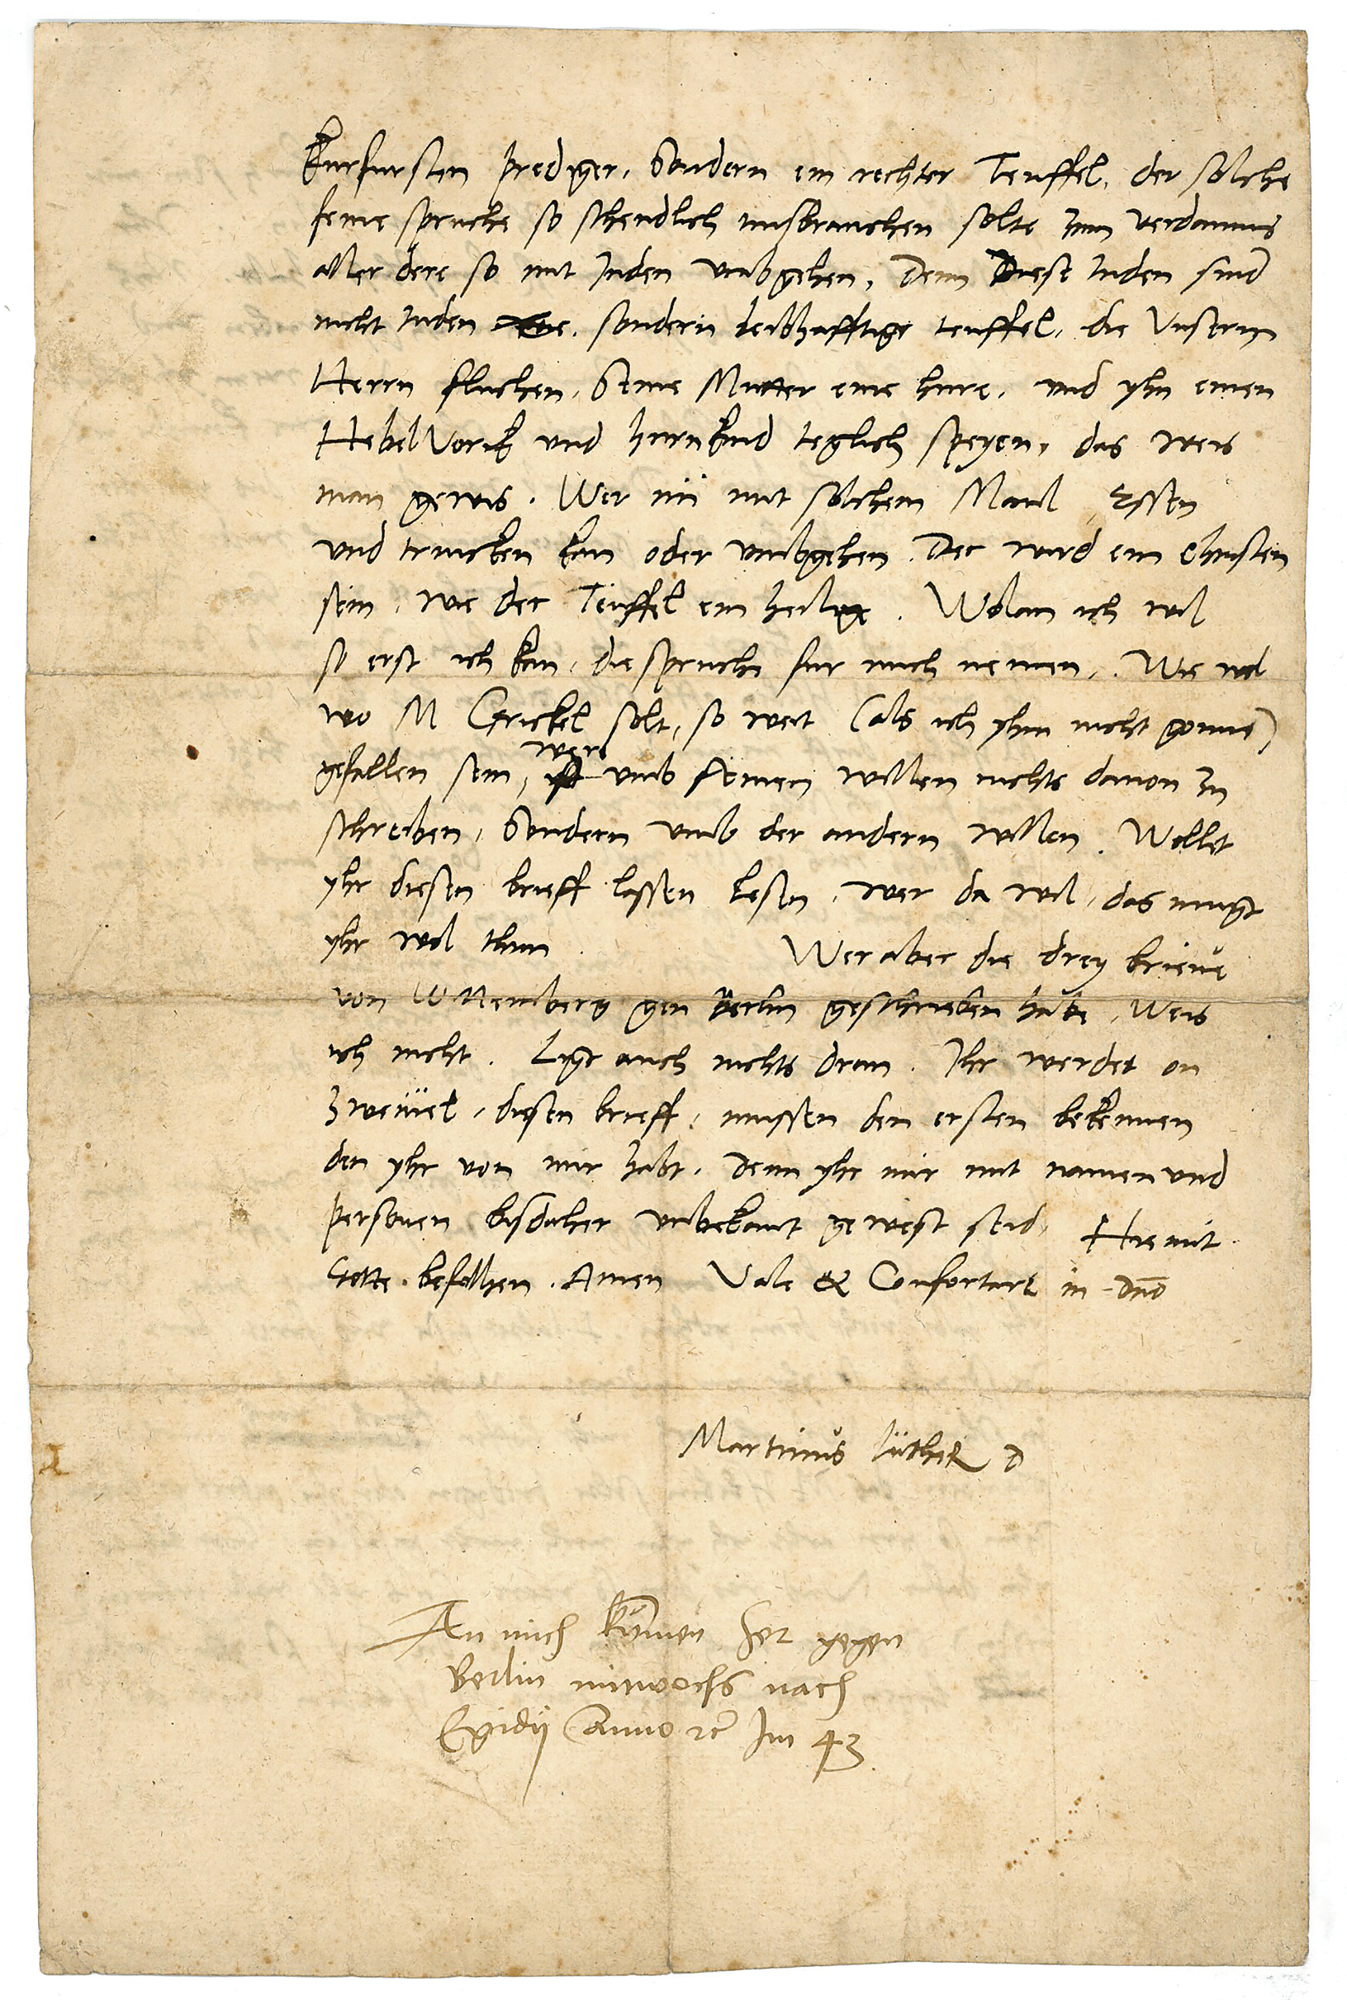 kurfursten prediger, Sondern ein rechter Teuffel, der solche
seine spruche so schendlich misbrauchen solte zum verdamnis
aller dere so mit Juden umbgehen, Denn Diese Juden sind
nicht Juden sondern leibhafftige teuffel, die Unserm
Herrn fluchen, Seine Mutter eine hure, und yhn einen
Hebel Vorik und hurnkind teglich speyen, das weis
man gewis. Wer nu mit solchem Maul Essen
und trincken kan oder umbgehen. Der wird ein Christen
sein, wie der Teuffel ein heilige. Wolan ich wil
so erst ich kan, die spruche fur mich nemen. Wie wol
wo M Grickel solt, so weit (als ich yhm nicht gonne)
gefallen sein, were umb seinen willen nichts davon zu
schreiben, Sondern umb der andern willen. Wollet
yhr diesen brieff lassen lesen, wer da wil, das mugt
yhr wol thun. Wer aber die drey brieve
von Wittemberg gen Berlin geschrieben habe, Weis
ich nicht. Ligt auch nichts dran. Ihr werdet on
zweivel, diesen brieff, mussen den ersten bekennen
den yhr von mir habt, Denn yhr mir mit namen und
personen bisdaher unbekant gewest seid, Hie mit
Gotte befolhen. Amen Vale & Confortare in dno
Martinus Luther D
An mich kumen her gegen
Berlin mitwochs nach
Egidij Anno rc Im 43